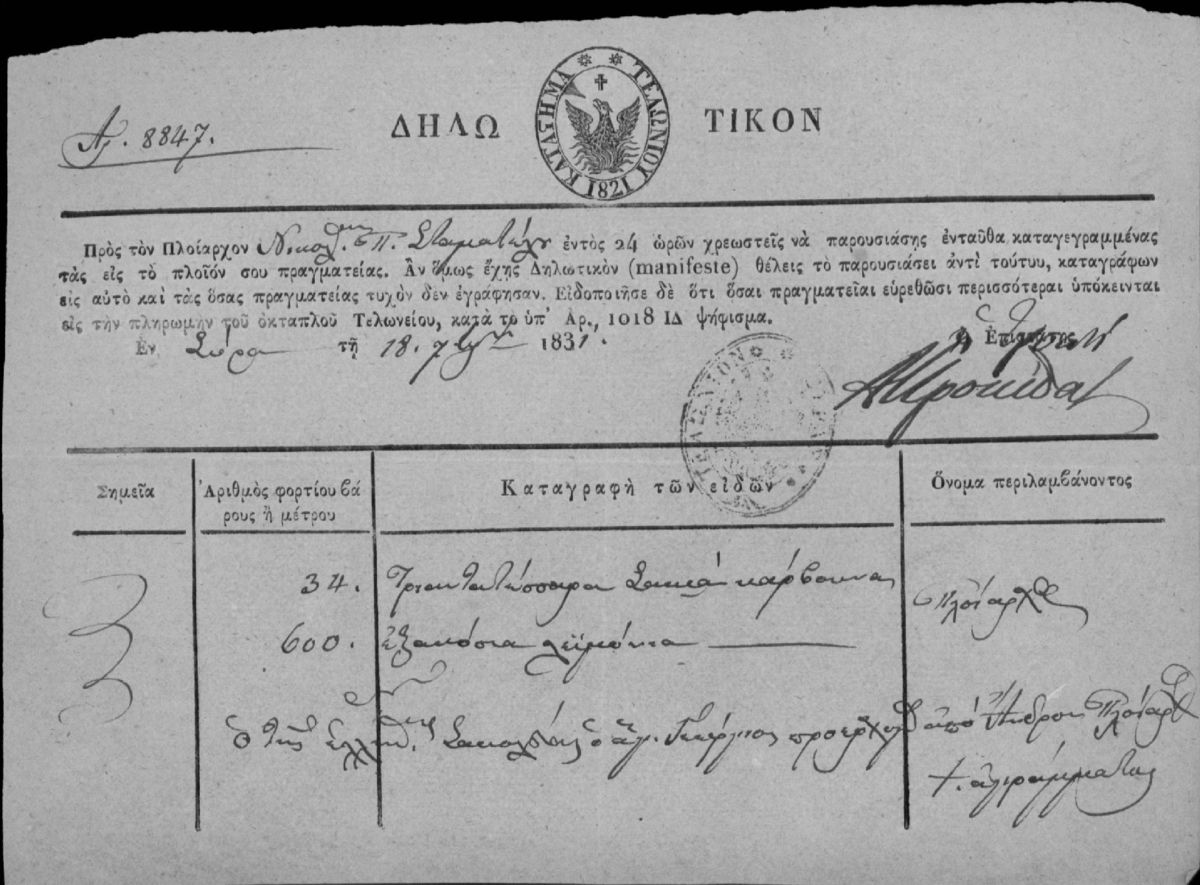 Ἀρ. 8847.
ΔΗΛΩ ΤΙΚΟΝ
ΚΑΤΑΣΤΗΜΑ ΤΕΛΩΝΙΟΥ
1821
Πρὸς τὸν Πλοίαρχον Νικολ. Π. Σταματέλον ἐντὸς 24 ὡρῶν χρεωστεῖς νὰ παρουσιάσῃς ἐνταῦθα καταγεγραμμένας
τὰς εἰς τὸ πλοῖόν σου πραγματείας. Ἂν ὅμως ἔχῃς Δηλωτικὸν (manifeste) θέλεις τὸ παρουσιάσει ἀντὶ τούτυυ, καταγράφων
εἰς αὐτὸ καὶ τὰς ὅσας πραγματείας τυχὸν δὲν ἐγράφησαν. Εἰδοποίησε δὲ ὅτι ὅσαι πραγματεῖαι εὑρεθῶσι περισσότεραι ὑπόκεινται
εἰς τὴν πληρωμὴν τοῦ ὀκταπλοῦ Τελωνείου, κατὰ τὸ ὑπ' Ἀρ., 1018 ΙΔ ψήφισμα.
Ἐν Σύρα τῇ 18. 7βρ 1831.
Ὁ Ἐπιστάτης
ΤΕΛΩΝΙΟΝ
Σημεῖα
Ἀριθμὸς φορτίου βά
ρους ἢ μέτρου
Καταγραφὴ τῶν εἰδῶν
Ὄνομα περιλαμβάνοντος
34. Τριαντατέσσαρα Σακιά κάρβουνα
Πλοίαρχος
600. ἑξακόσια λεϊμόνια
ὁ τῆς Ἑλλην. Σακολέβης ὁ ἅγ. Γεώργιος προερχ. ἀπὸ Ἄνδρον Πλοίαρχ
+. ἀγράμματος